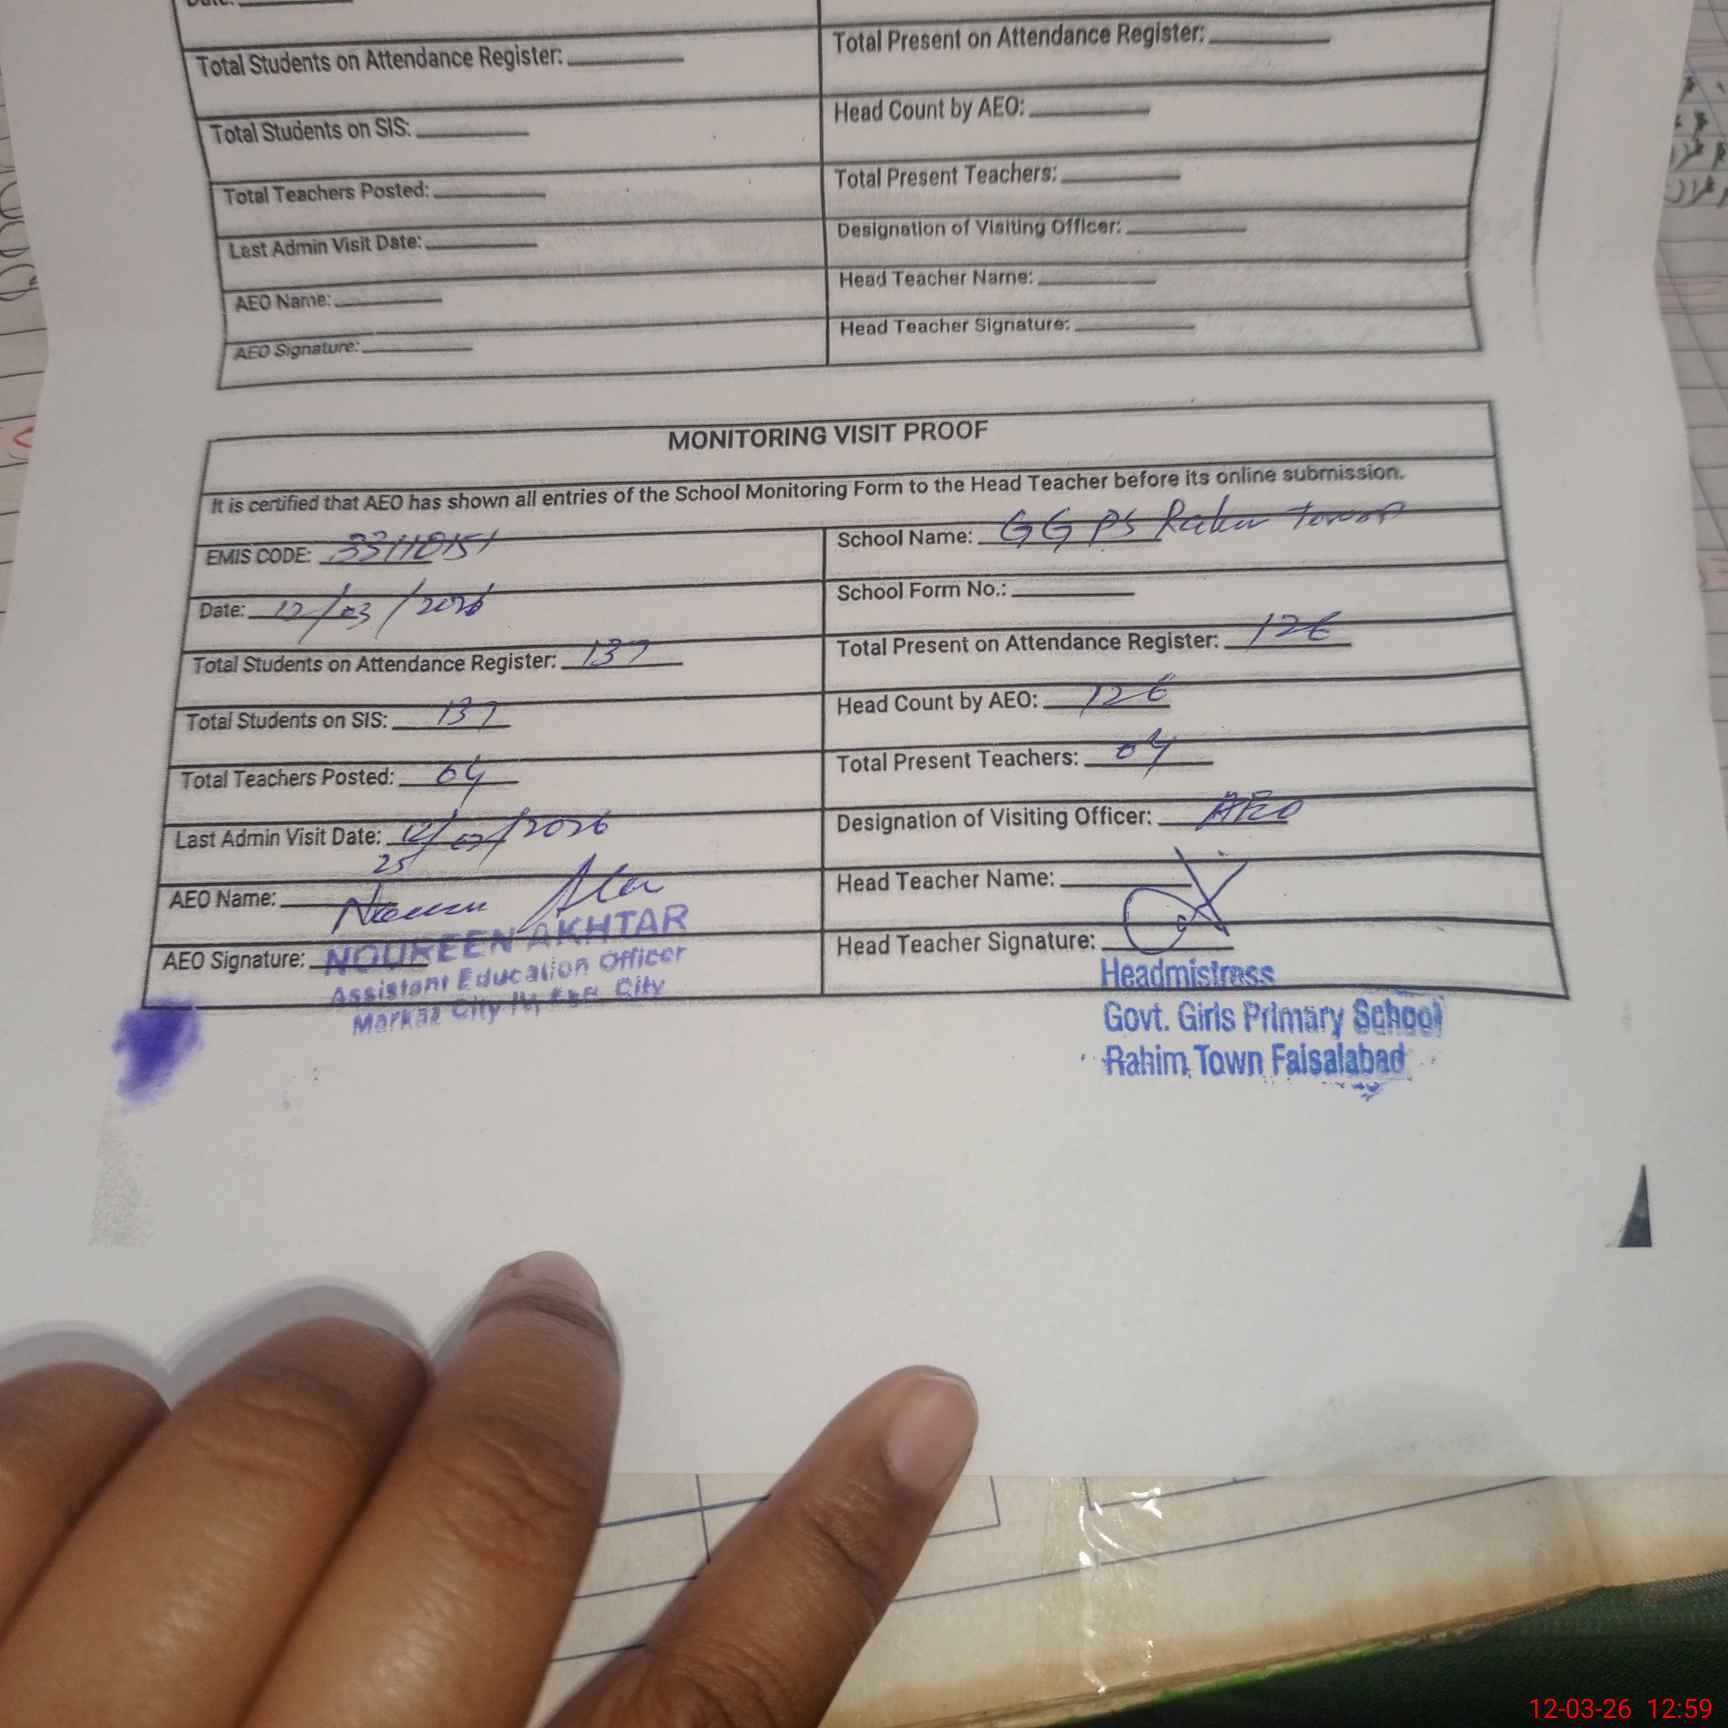 Date:
Total Students on Attendance Register:
Total Present on Attendance Register:
Total Students on SIS:
Head Count by AEO:
Total Teachers Posted:
Total Present Teachers:
Last Admin Visit Date:
Designation of Visiting Officer:
AEO Name:
Head Teacher Name:
AEO Signature:
Head Teacher Signature:
MONITORING VISIT PROOF
It is certified that AEO has shown all entries of the School Monitoring Form to the Head Teacher before its online submission.
EMIS CODE: 33110151
School Name: GGPS Town
Date: 12/03/2026
School Form No.:
Total Students on Attendance Register: 137
Total Present on Attendance Register: 126
Total Students on SIS: 137
Head Count by AEO: 126
Total Teachers Posted: 04
Total Present Teachers: 04
Last Admin Visit Date: /2026
25
Designation of Visiting Officer: AEO
AEO Name:
Head Teacher Name:
AEO Signature: NOUREEN AKHTAR
Assistant Education Officer
Markaz City IV, FSR City
Head Teacher Signature:
Headmistress
Govt. Girls Primary School
Rahim Town Faisalabad
12-03-26 12:59